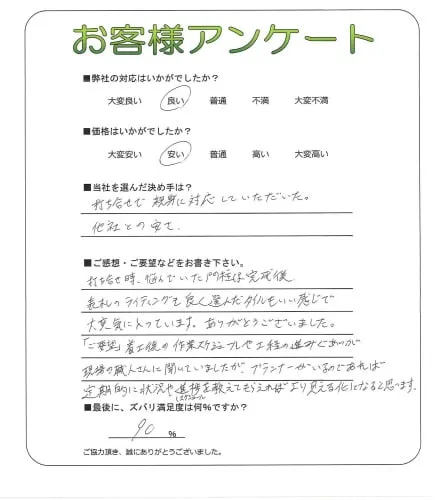 お客様アンケート
■弊社の対応はいかがでしたか?
大変良い 良い 普通 不満 大変不満
■価格はいかがでしたか?
大変安い 安い 普通 高い 大変高い
■当社を選んだ決め手は?
打ち合せで親身に対応していただいた。
他社との安さ.
■ご感想・ご要望などをお書き下さい。
打ち合せ時、悩んでいた門柱は完成後
表札のライティングも良く選んだタイルもいい感じで
大変気に入っています。ありがとうございました。
「ご要望」着工後の作業スケジュールや工程の進み具合が
現場の職人さんに聞いていましたが、プランナーがいるのであれば
定期的に状況や進捗を教えてもらえればより見える化になると思います.
(スケジュール)
■最後に、ズバリ満足度は何%ですか?
90 %
ご協力頂き、誠にありがとうございました。